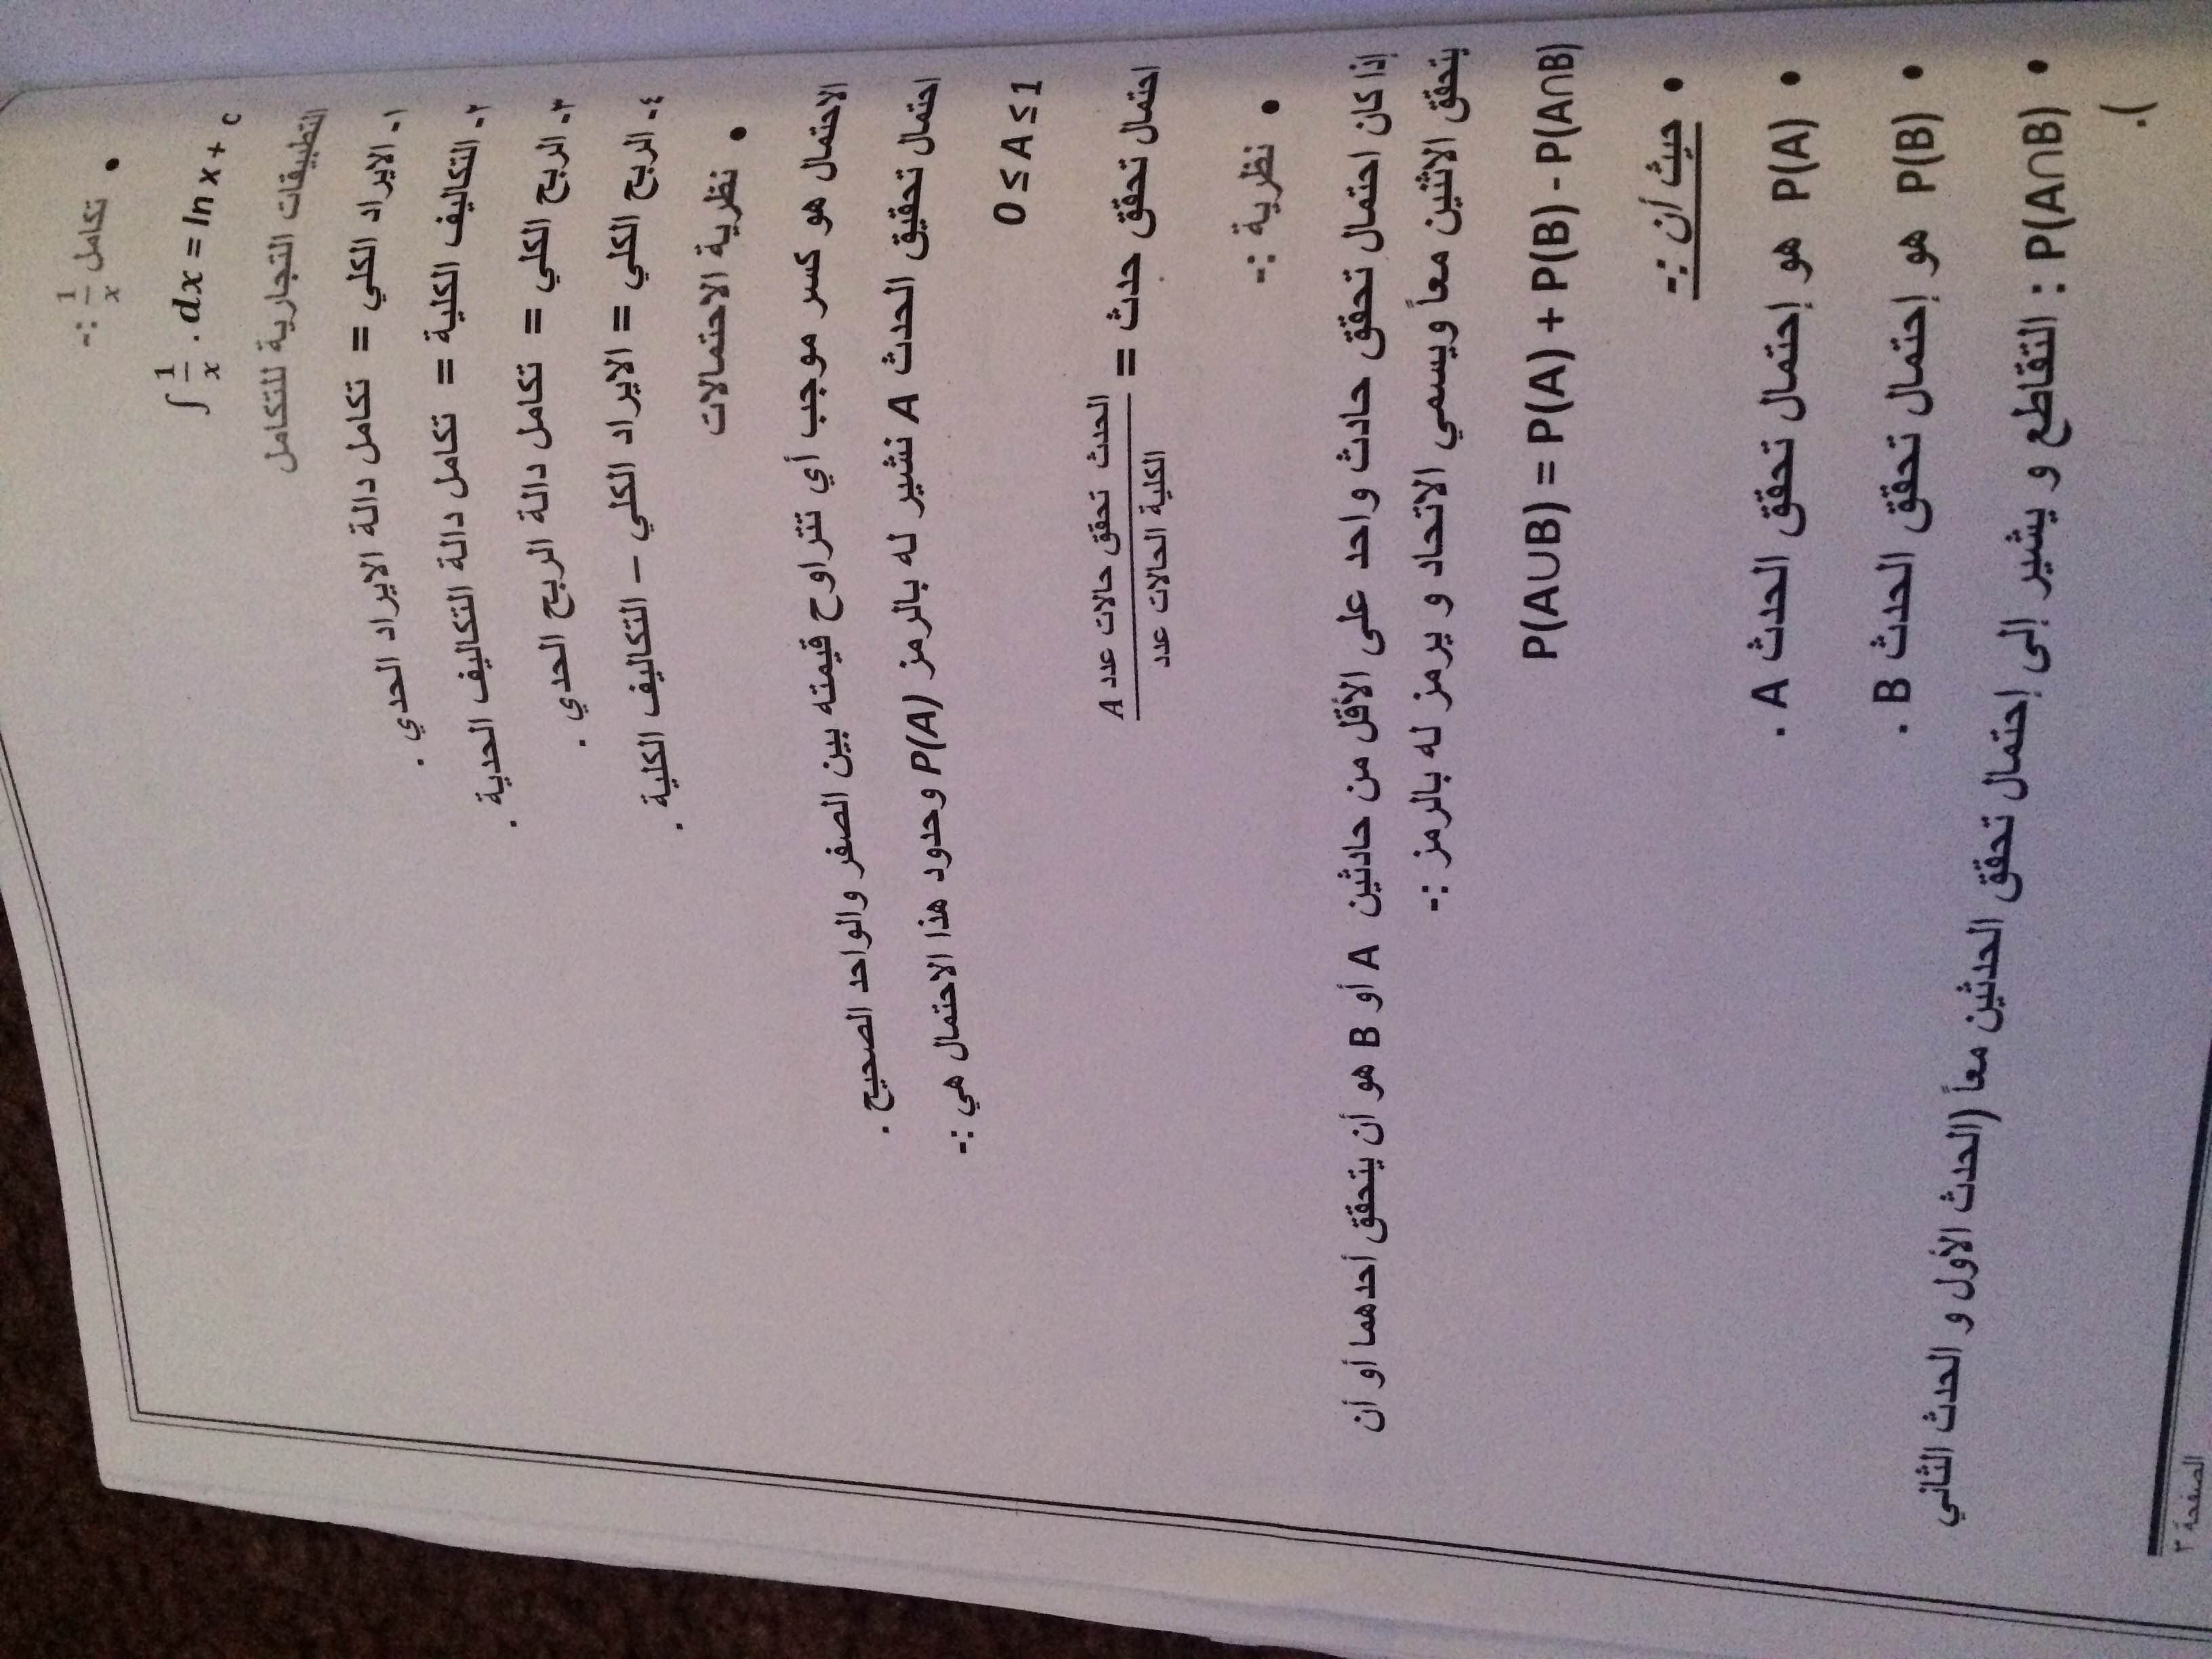 • تكامل 1/x :-
∫ 1/x . dx = ln x + c
التطبيقات التجارية للتكامل
١- الايراد الكلي = تكامل دالة الايراد الحدي .
٢- التكاليف الكلية = تكامل دالة التكاليف الحدية .
٣- الربح الكلي = تكامل دالة الربح الحدي .
٤- الربح الكلي = الايراد الكلي – التكاليف الكلية .
• نظرية الاحتمالات
الاحتمال هو كسر موجب أي تتراوح قيمته بين الصفر والواحد الصحيح .
احتمال تحقيق الحدث A نشير له بالرمز P(A) وحدود هذا الاحتمال هي :-
0 ≤ A ≤ 1
احتمال تحقق حدث = الحدث تحقق حالات عدد A / الكلية الحالات عدد
• نظرية :-
إذا كان احتمال تحقق حادث واحد على الأقل من حادثين A أو B هو أن يتحقق أحدهما أو أن
يتحقق الاثنين معاً ويسمي الاتحاد و يرمز له بالرمز :-
P(A∪B) = P(A) + P(B) - P(A∩B)
• حيث أن :-
• P(A) هو إحتمال تحقق الحدث A .
• P(B) هو إحتمال تحقق الحدث B .
• P(A∩B) : التقاطع و يشير إلى إحتمال تحقق الحدثين معاً (الحدث الأول و الحدث الثاني
).
الصفحة ٣